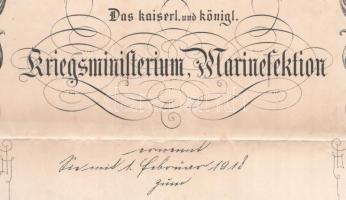 Das kaiserl. und königl.
Kriegsministerium, Marinesektion
ernennt
Sie mit 1. Februar 1918
zum